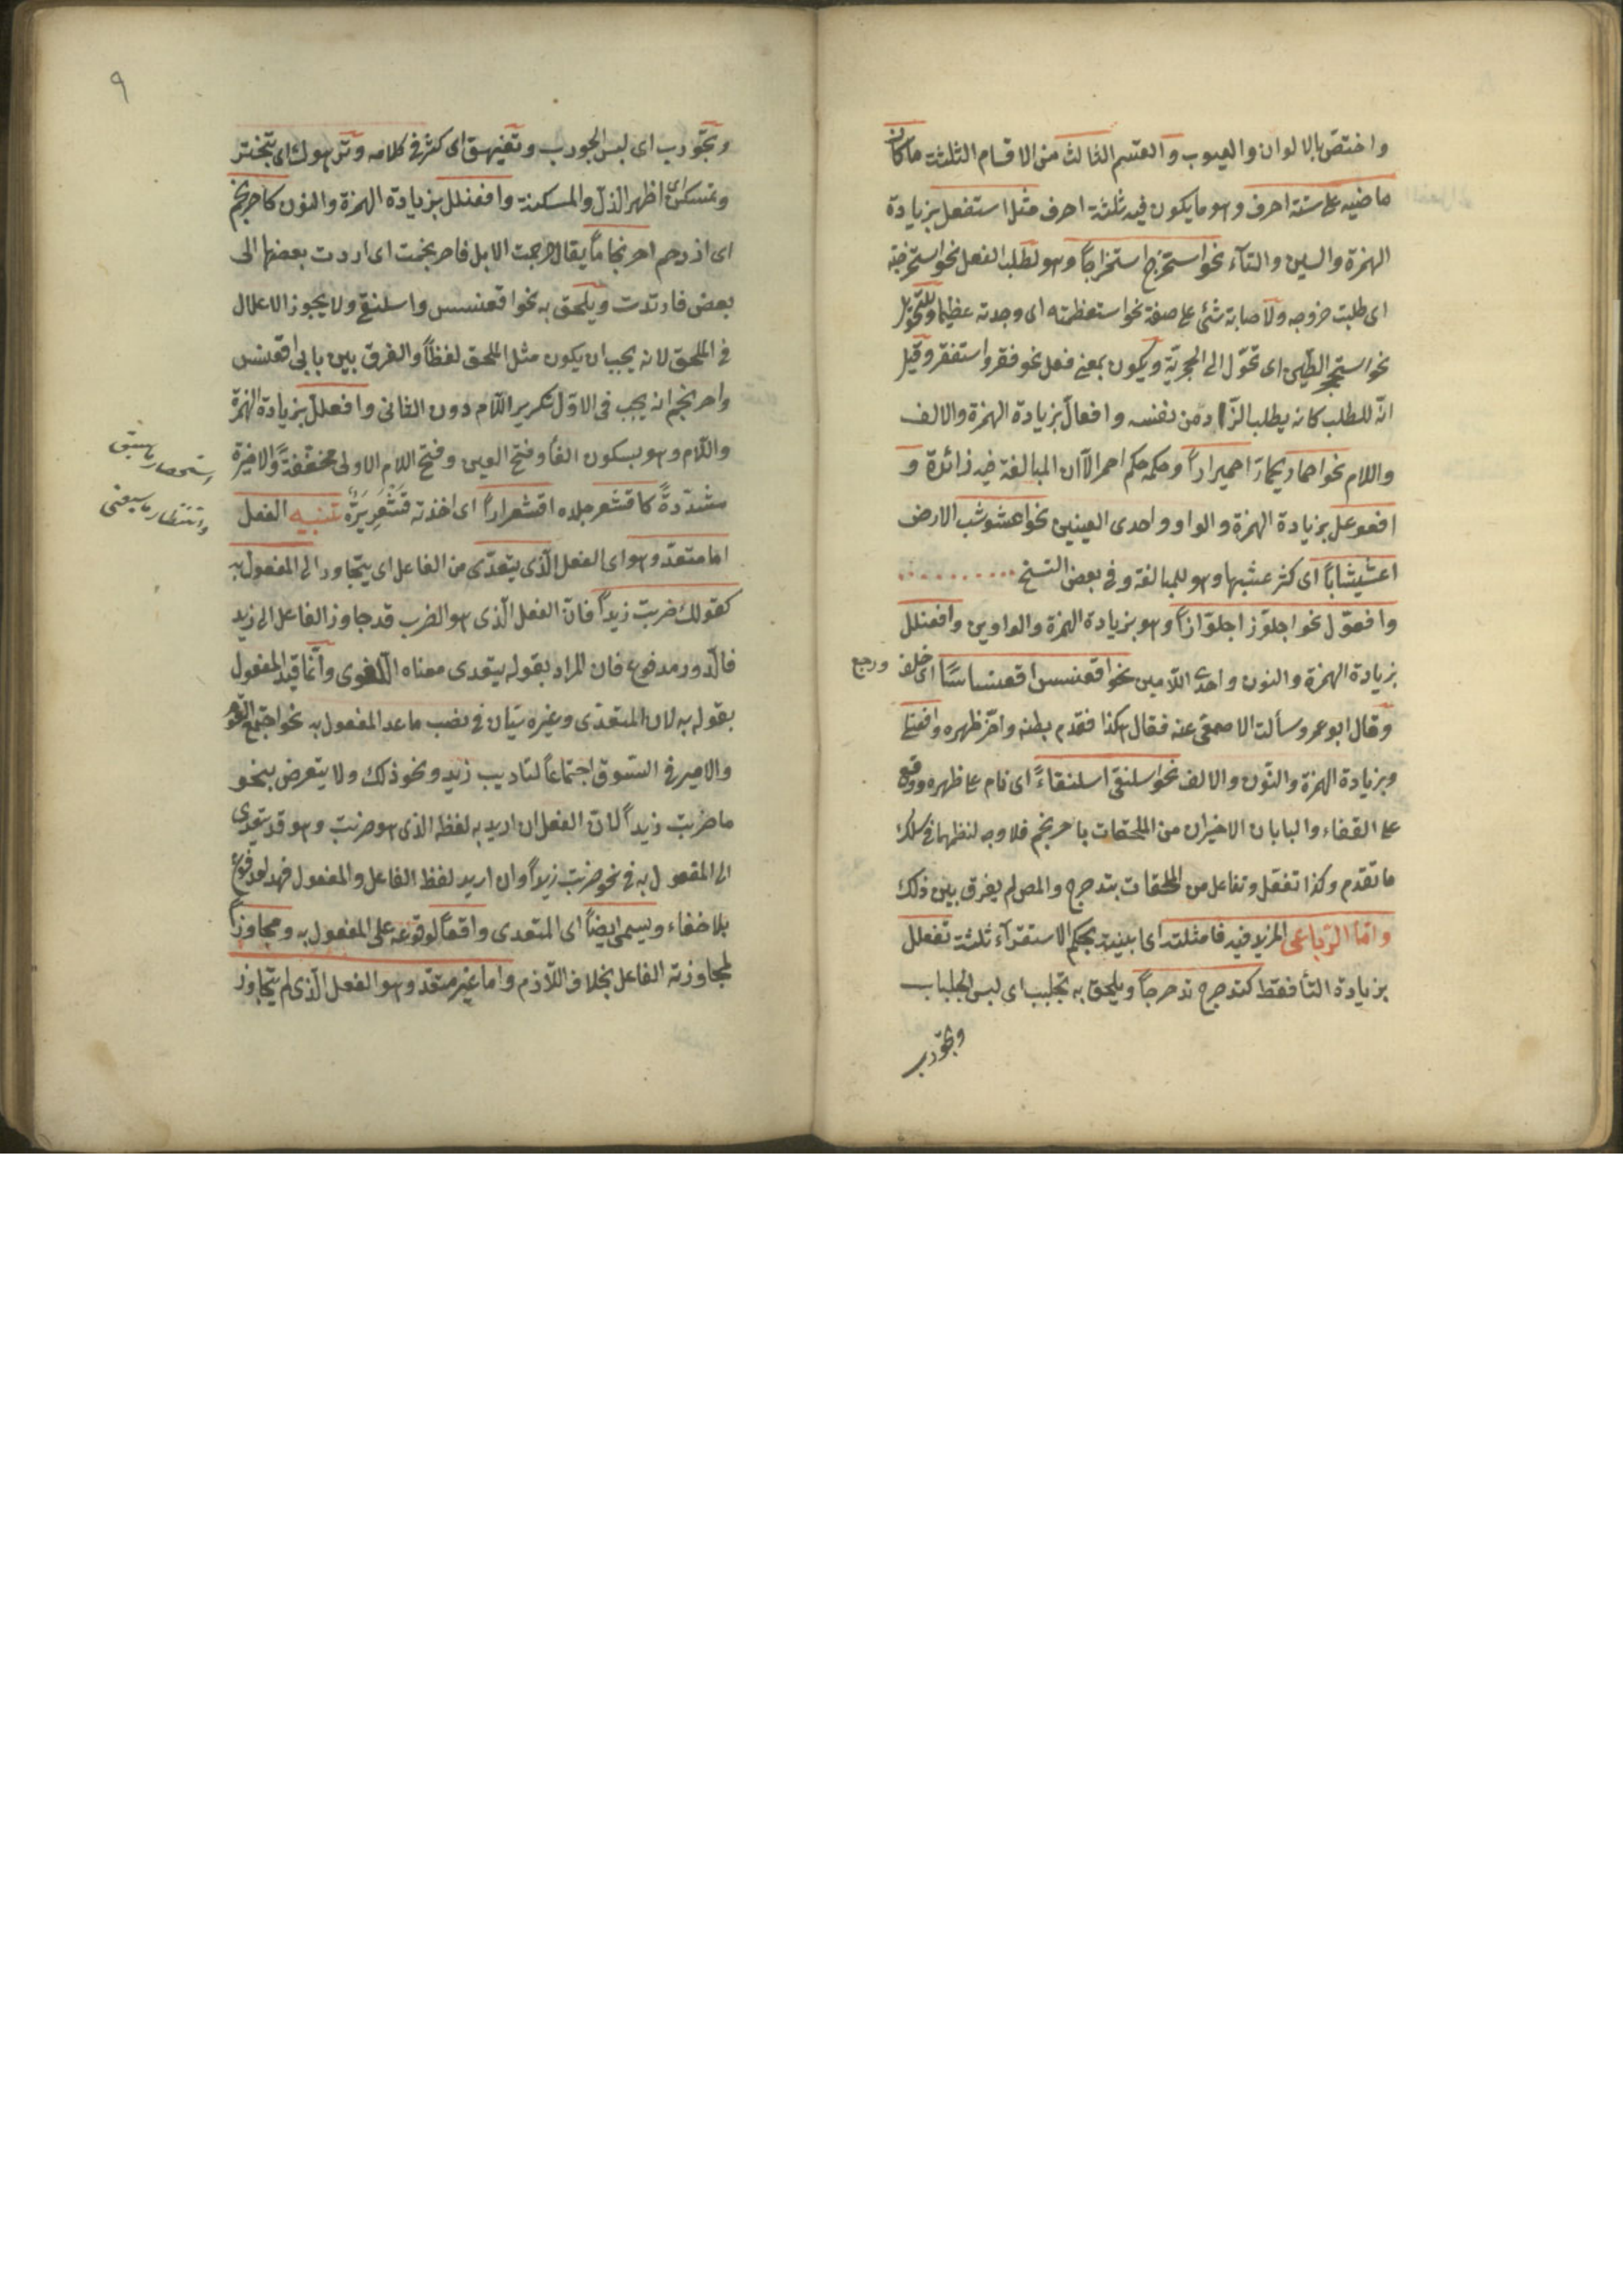 واختصّ بالالوان والعيوب والقسم الثالث من الاقسام الثلثة ماكان
ماضيه على ستة احرف وهو ما يكون فيه ثلثة احرف مثل استفعل بزيادة
الهمزة والسين والتآء نحو استخرج استخراجاً وهو لطلب الفعل نحو استخرجته
اى طلبت خروجه ولاصابة شئ على صفة نحو استعظمته اى وجدته عظيما وللتحوّل
نحو استحجر الطين اى تحوّل الى الحجريّة ويكون بمعنى فعل نحو فقر واستفقر وقيل
انّه للطلب كانه يطلب الزاد من نفسه وافعالّ بزيادة الهمزة والالف
واللام نحو احمارّ يحمارّ احميراراً وحكمه حكم احمر الّا ان المبالغة فيه زائدة و
افعوعل بزيادة الهمزة والواو واحدى العينين نحو اعشوشب الارض
اعشيشاباً اى كثر عشبها وهو للمبالغة وفى بعض النسخ
وافعوّل نحو اجلوّز اجلوّازاً وهو بزيادة الهمزة والواوين وافعنلل
بزيادة الهمزة والنون واحدى اللّامين نحو اقعنسس اقعنساساً اى خلف ورجع
وقال ابو عمرو سألت الاصمعى عنه فقال هكذا فقدم بطنه واخّر ظهره وافعنلى
وبزيادة الهمزة والنّون والالف نحو اسلنقى اسلنقاءً اى نام على ظهره ووقع
على القفاء والبابان الاخيران من الملحقات باحرنجم فلا وجه لنظمهما فى سلك
ما تقدم وكذا تفعّل وتفاعل من الملحقات بتدحرج والمص لم يفرق بين ذلك
وامّا الرّباعى المزيد فيه فامثلته اى ابنيته بحكم الاستقرآء ثلثة تفعلل
بزيادة التأ فقط كتدحرج تدحرجاً ويلحق به تجلبب اى لبس الجلباب
وتجوّرب
٩
وتجوّرب اى لبس الجورب وتفيهق اى كثر فى كلامه وترهوك اى تبختر
وتمسكن اى اظهر الذلّ والمسكنة وافعنلل بزيادة الهمزة والنون كاحرنجم
اى ازدحم احرنجاماً يقال حرجمت الابل فاحرنجمت اى اردت بعضها الى
بعض فارتدت ويلحق به نحو اقعنسس واسلنقى ولا يجوز الاعلال
فى الملحق لانه يجب ان يكون مثل الملحق لفظاً والفرق بين بابى اقعنسس
واحرنجم انه يجب فى الاوّل تكرير اللّام دون الثانى وافعللّ بزيادة الهمزة
واللّام وهو بسكون الفأ وفتح العين وفتح اللام الاولى مخففةً والاخيرة
مشدّدةً كاقشعر جلده اقشعراراً اى اخذته قَشْعَرِيرَةٌ تنبيه الفعل
استحصار ما سبق
وانتظار ما سيأتى
اما متعدّ وهو اى الفعل الّذى يتعدّى من الفاعل اى يتجاوز الى المفعول به
كقولك ضربت زيداً فانّ الفعل الّذى هو الضرب قد جاوز الفاعل الى زيد
فالدّور مدفوع فان المراد بقوله يتعدى معناه اللّغوى وانّما قيد المفعول
بقوله به لان المتعدّى وغيره سيّان فى نصب ما عد المفعول به نحو اجتمع القوم
والامير فى السّوق اجتماعاً لتاديب زيد ونحو ذلك ولا يتعرض بنحو
ما ضربت زيداً لانّ الفعل ان اريد به لفظه الذى هو ضربت وهو قد يتعدى
الى المفعول به فى نحو ضربت زيداً وان اريد لفظ الفاعل والمفعول
بلا خفاء ويسمى ايضاً اى المتعدى واقعاً لوقوعه على المفعول به ومجاوزاً
لمجاوزته الفاعل بخلاف اللّازم واما غير متعدّ وهو الفعل الّذى لم يتجاوز